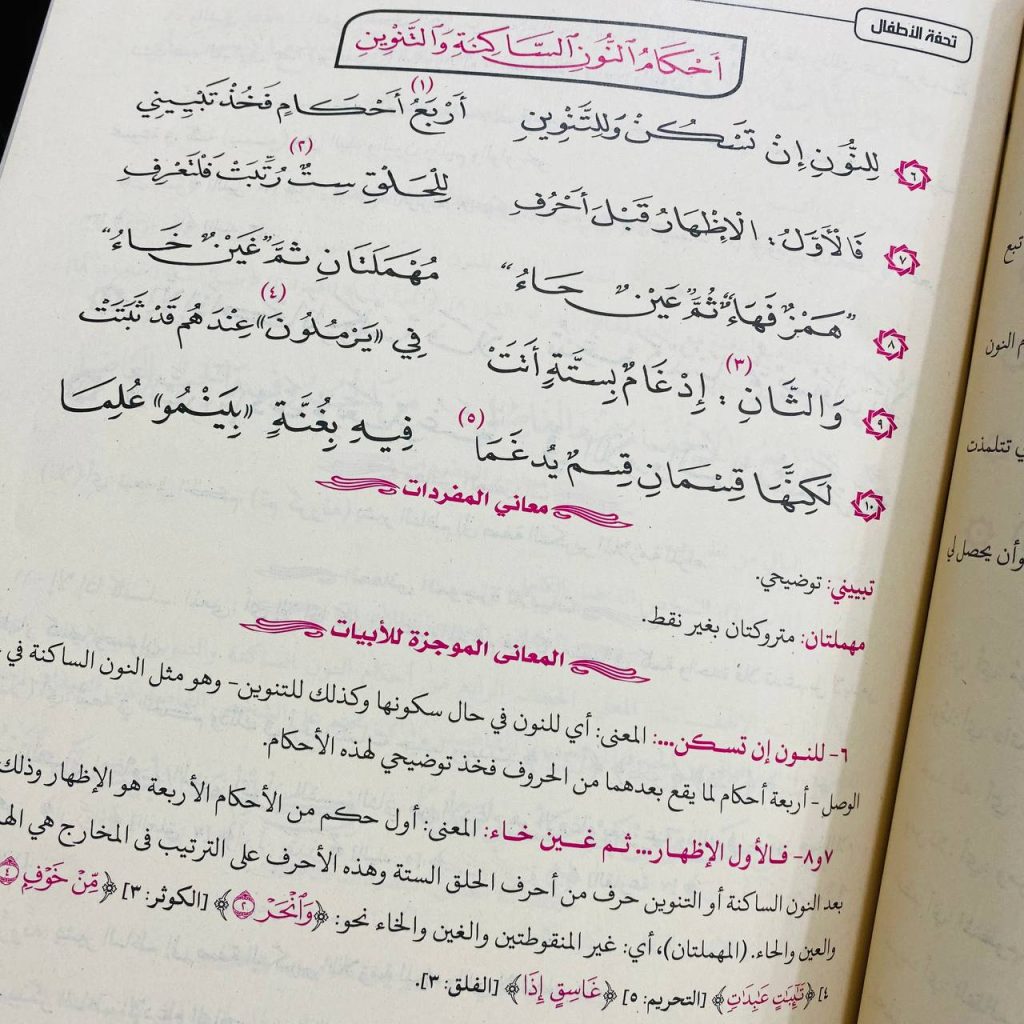 تحفة الأطفال
أَحْكَامُ النُّونِ السَّاكِنَةِ وَالتَّنْوِينِ
٦ لِلنُّونِ إِنْ تَسْكُنْ وَلِلتَّنْوِينِ أَرْبَعُ (١) أَحْكَامٍ فَخُذْ تَبْيِينِي
٧ فَالْأَوَّلُ: الْإِظْهَارُ قَبْلَ أَحْرُفِ لِلْحَلْقِ سِتٌّ رُتِّبَتْ (٢) فَلْتَعْرِفِ
٨ "هَمْزٌ فَهَاءٌ" ثُمَّ "عَيْنٌ حَاءُ" مُهْمَلَتَانِ ثُمَّ "غَيْنٌ خَاءُ"
٩ وَالثَّانِ: إِدْغَامٌ (٣) بِسِتَّةٍ أَتَتْ فِي «يَرْمُلُونَ» عِنْدَهُمْ (٤) قَدْ ثَبَتَتْ
١٠ لَكِنَّهَا قِسْمَانِ قِسْمٌ يُدْغَمَا (٥) فِيهِ بِغُنَّةٍ «بِيَنْمُو» عُلِمَا
معاني المفردات
تبييني: توضيحي.
مهملتان: متروكتان بغير نقط.
المعانى الموجزة للأبيات
٦- للنون إن تسكن...: المعنى: أي للنون في حال سكونها وكذلك للتنوين- وهو مثل النون الساكنة في
الوصل- أربعة أحكام لما يقع بعدهما من الحروف فخذ توضيحي لهذه الأحكام.
٧و٨- فالأول الإظهار... ثم غين خاء: المعنى: أول حكم من الأحكام الأربعة هو الإظهار وذلك
بعد النون الساكنة أو التنوين حرف من أحرف الحلق الستة وهذه الأحرف على الترتيب فى المخارج هي
والعين والحاء. (المهملتان)، أي: غير المنقوطتين والغين والخاء نحو: ﴿وَٱنْحَرْ ٢﴾ [الكوثر: ٣] ﴿مِّنْ خَوْفٍ ٤
٤] ﴿تَٰٓئِبَٰتٍ عَٰبِدَٰتٍ﴾ [التحريم: ٥] ﴿غَاسِقٍ إِذَا﴾ [الفلق: ٣].
تبع
النون
تتلمذت
وأن يحصل لي